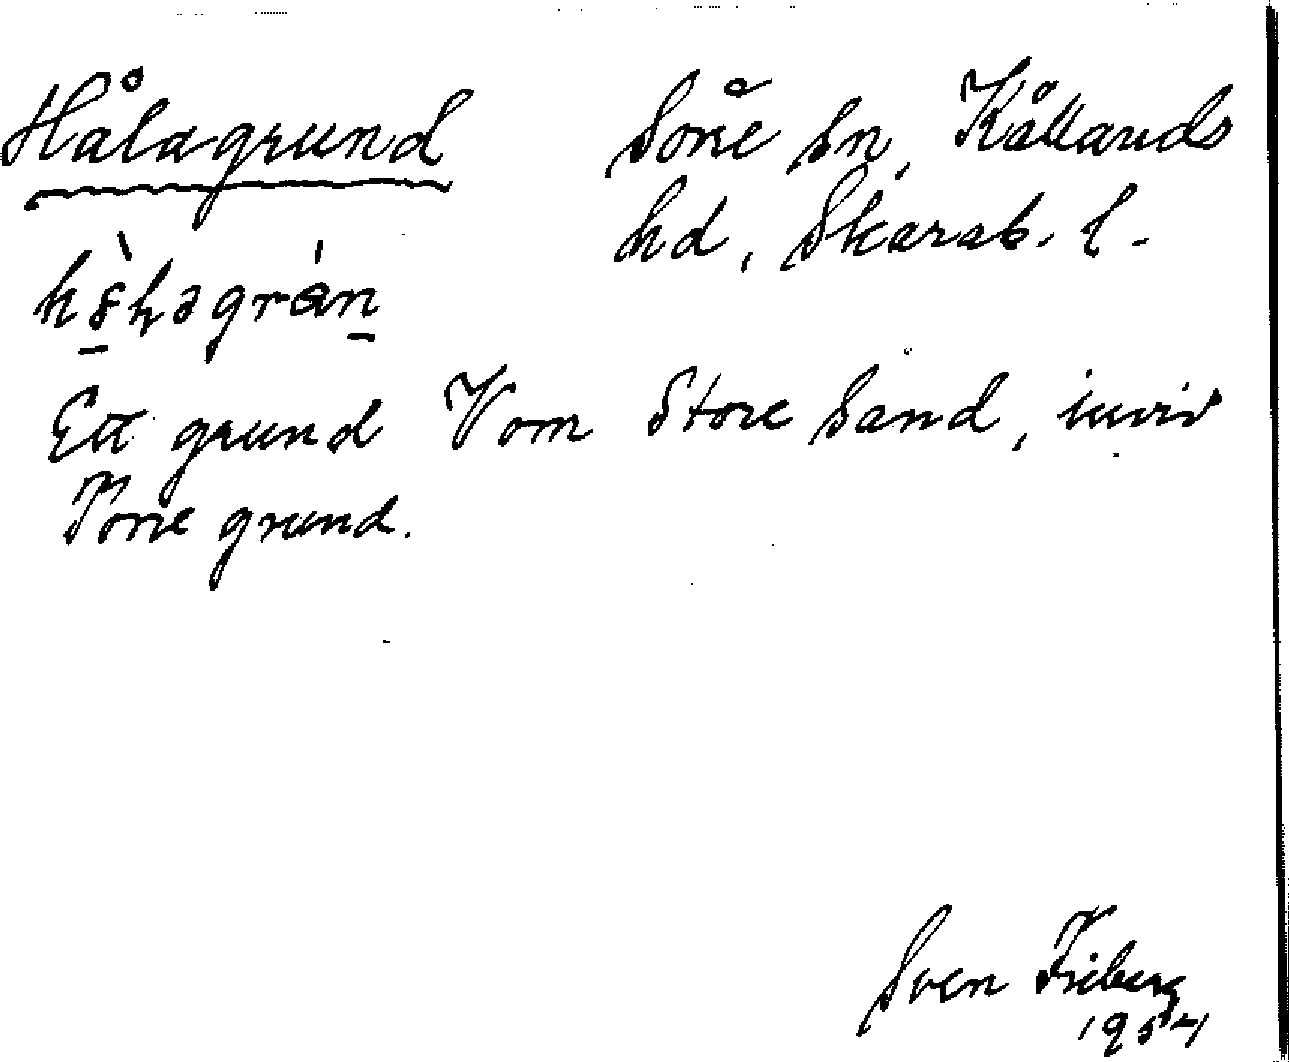 Hålagrund Sone sn, Kållands
hd, Skarab. l.
Ett grund V om Store sand, invid
Tore grund.
Sven Friberg
1954